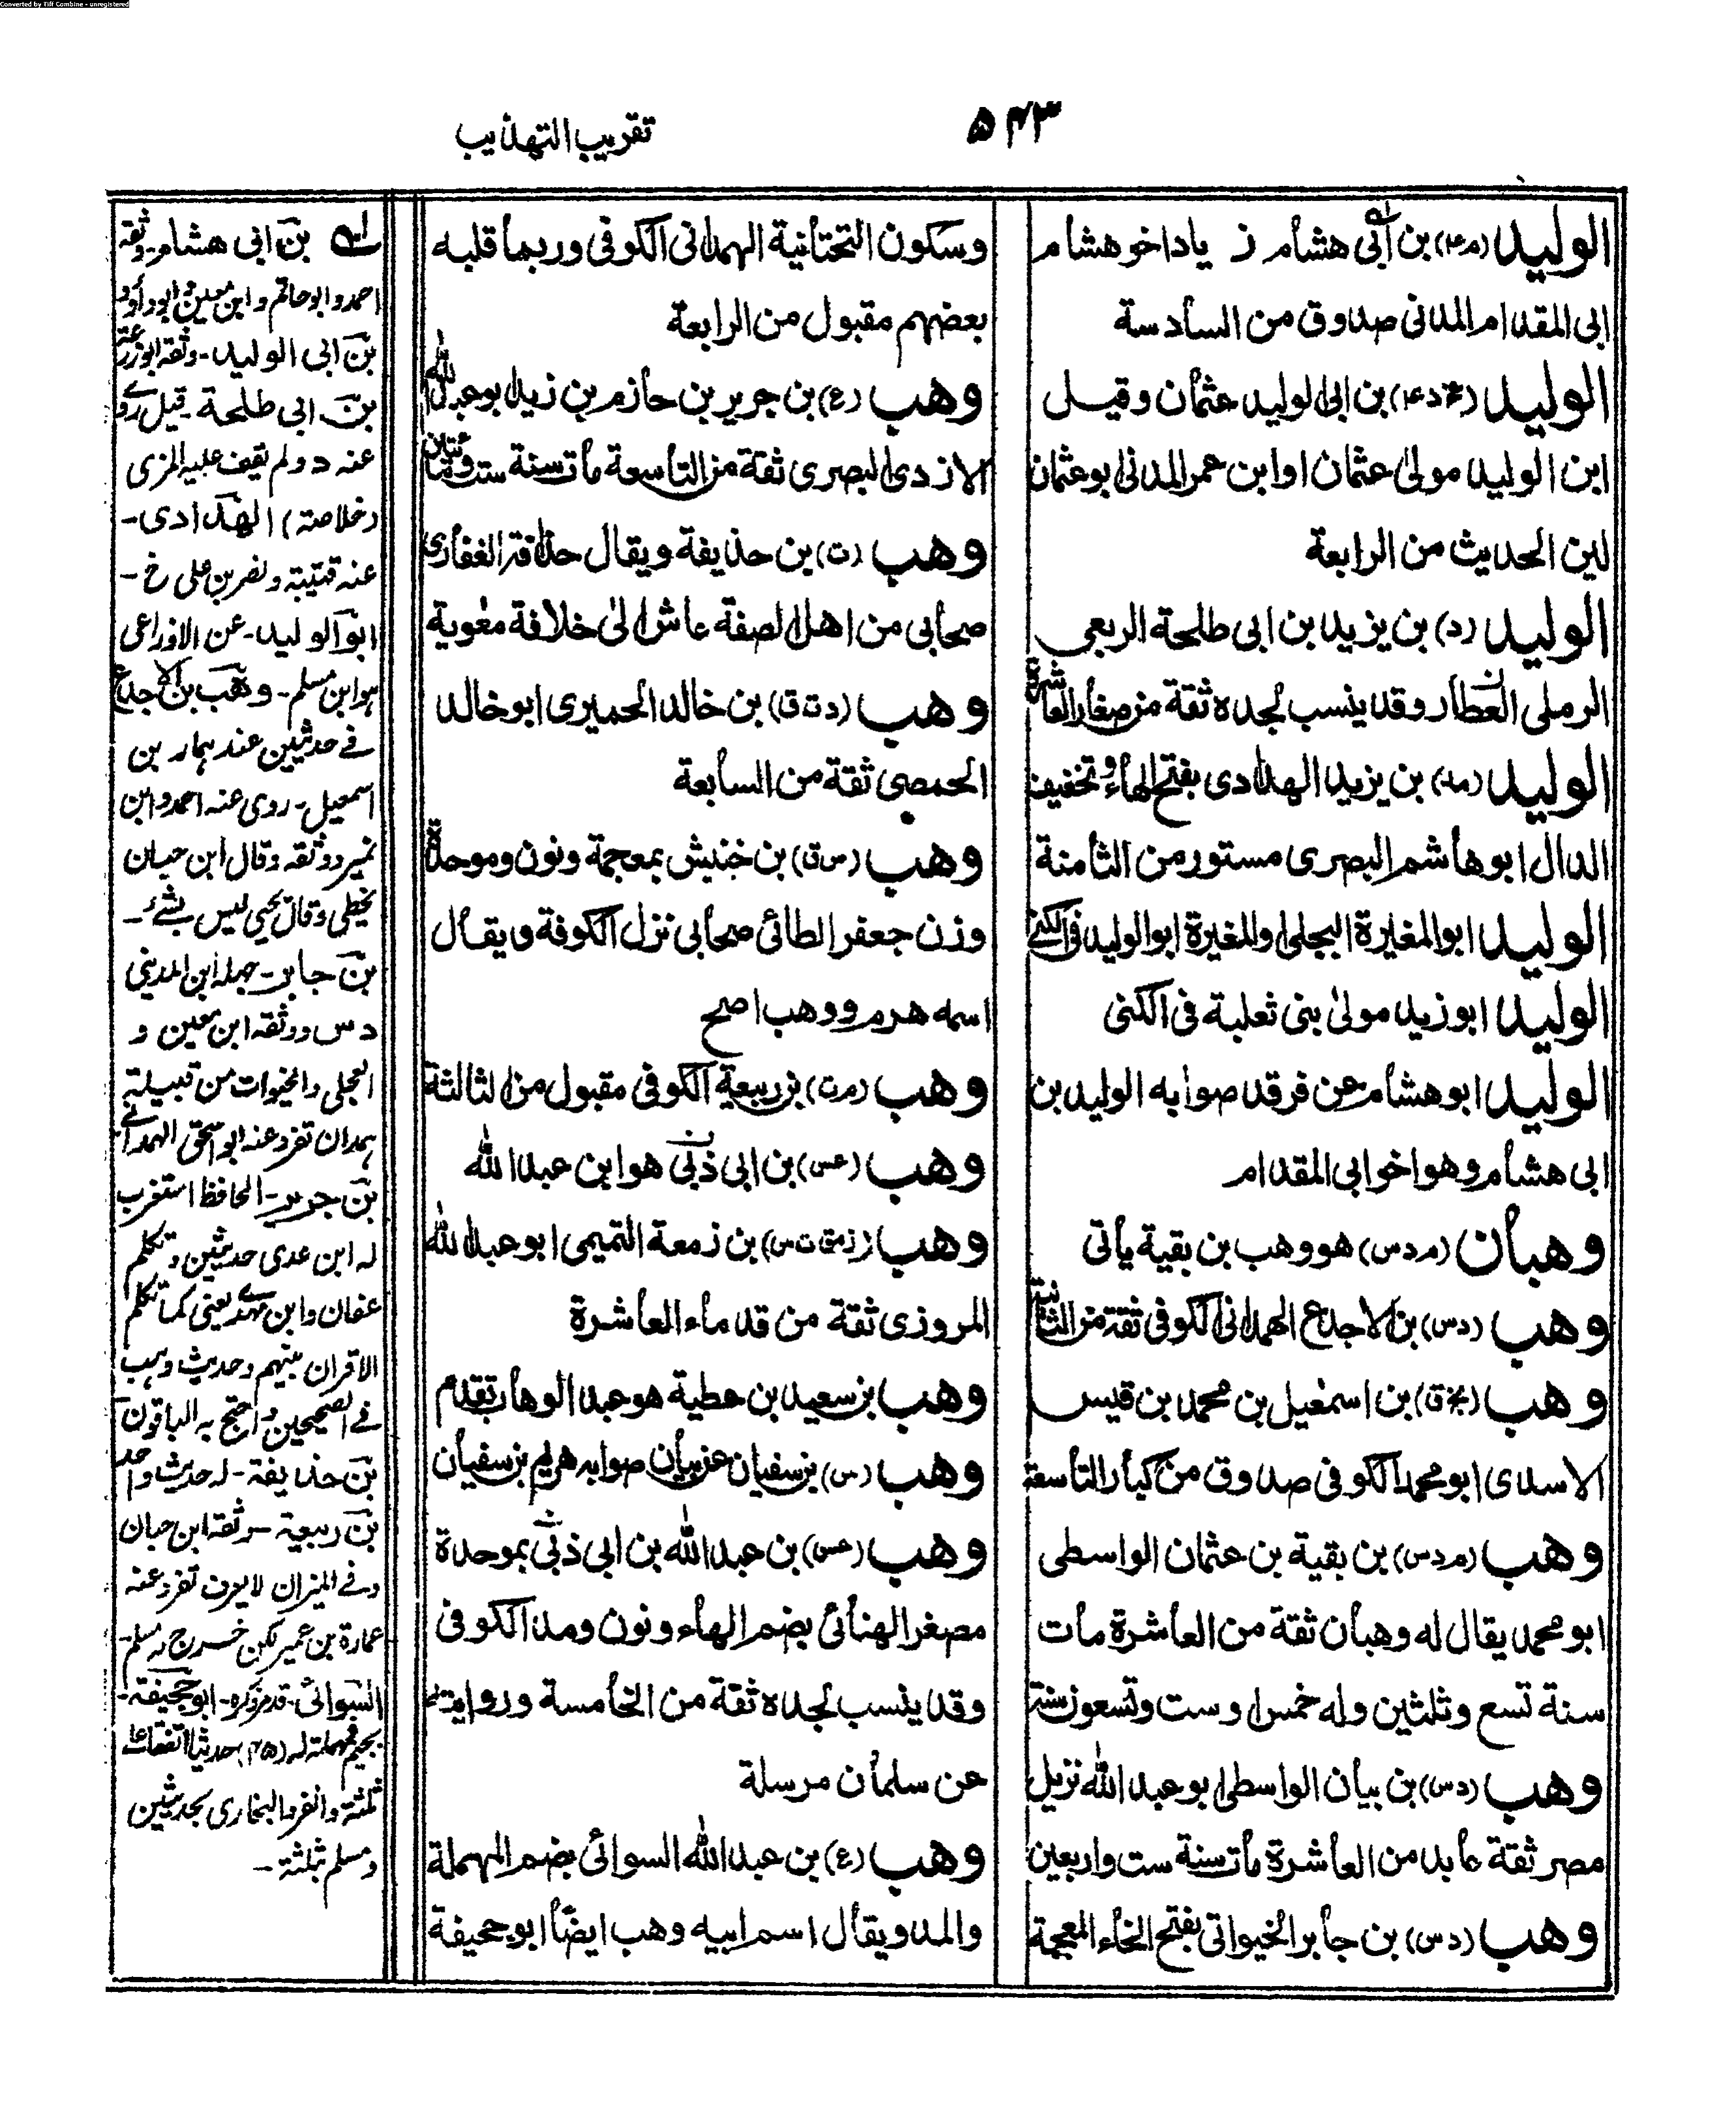 Converted by Tiff Combine - unregistered
۵۴۳
تقريب التهذيب
الوليد (م۴) بن أبى هشام زياد اخو هشام
ابى المقدام المدنى صدوق من السادسة
الوليد بن ابى الوليد عثمان وقيل
ابن الوليد مولى عثمان او ابن عمر المدنى ابو عثمان
لين الحديث من الرابعة
الوليد (د) بن يزيد بن ابى طلحة الربعى
الرملى العطار وقد ينسب لجده ثقة من صغار العاشرة
الوليد (مد) بن يزيد الهدادى بفتح الهاء وتخفيف
الدال ابو هاشم البصرى مستور من الثامنة
الوليد ابو المغيرة البجلى او المغيرة ابو الوليد فى الكنى
الوليد ابو زيد مولى بنى ثعلبة فى الكنى
الوليد ابو هشام عن فرقد صوابه الوليد بن
ابى هشام وهو اخو ابى المقدام
وهبان (م د س) هو وهب بن بقية يأتى
وهب (د س) بن الاجدع الهمدانى الكوفى ثقة من الثانية
وهب (بخ ق) بن اسمعيل بن محمد بن قيس
الاسدى ابو محمد الكوفى صدوق من كبار التاسعة
وهب (م د س) بن بقية بن عثمان الواسطى
ابو محمد يقال له وهبان ثقة من العاشرة مات
سنة تسع وثلثين وله خمس او ست وتسعون سنة
وهب (د س) بن بيان الواسطى ابو عبد الله نزيل
مصر ثقة عابد من العاشرة مات سنة ست واربعين
وهب (د س) بن جابر الخيوانى بفتح الخاء المعجمة
وسكون التحتانية الهمدانى الكوفى وربما قلبه
بعضهم مقبول من الرابعة
وهب (ع) بن جرير بن حازم بن زيد ابو عبد الله
الازدى البصرى ثقة من التاسعة مات سنة ست ومئتين
وهب (ت) بن حذيفة ويقال حذافة الغفارى
صحابى من اهل الصفة عاش الى خلافة معوية
وهب (د ت ق) بن خالد الحميرى ابو خالد
الحمصى ثقة من السابعة
وهب (س ق) بن خنبش بمعجمة ونون وموحدة
وزن جعفر الطائى صحابى نزل الكوفة ويقال
اسمه هرم ووهب اصح
وهب (م ت) بن ربيعة الكوفى مقبول من الثالثة
وهب (عس) بن ابى دبى هو ابن عبد الله
وهب بن زمعة التميمى ابو عبد الله
المروزى ثقة من قدماء العاشرة
وهب بن سعيد بن عطية هو عبد الوهاب تقدم
وهب (س) بن سفيان عن بيان صوابه هريم بن سفيان
وهب (عس) بن عبد الله بن ابى دبى بموحدة
مصغر الهنائى بضم الهاء ونون ومد الكوفى
وقد ينسب لجده ثقة من الخامسة وروايته
عن سلمان مرسلة
وهب (ع) بن عبد الله السوائى بضم المهملة
والمد ويقال اسم ابيه وهب ايضا ابو جحيفة
بن ابى هشام - وثقه
احمد وابو حاتم وابن معين وابو داؤد
بن ابى الوليد - وثقه ابو زرعة
بن ابى طلحة - قيل روى
عنه د ولم يقف عليه المزى
(خلاصة) الهدادى -
عنه قتيبة ونصر بن على خ -
ابو الوليد - عن الاوزاعى
هو ابن مسلم - وهب بن الاجدع
فے حديثين عند هما ر بن
اسمعيل - روى عنه احمد وابن
نمير ووثقه وقال ابن حبان
يخطى وقال يحيى ليس بشئ -
بن جابر - جهله ابن المدينى
د س ووثقه ابن معين و
العجلى والخيوان من قبيلة
همدان تفرد عنه ابو اسحق الهمدانے
بن جرير - الحافظ استغرب
له ابن عدى حديثين وتكلم
عفان وابن مهدى يعنى كما تكلم
الاقران بينهم وحديث وهب
فے الصحيحين واحتج به الباقون
بن حذيفة - له حديث واحد
بن ربيعة - وثقه ابن حبان
وفے الميزان لا يعرف تفرد عنه
عمارة بن عمير لكن خرج له مسلم -
السوائى - قد مر ذكره - ابو جحيفة -
بجيم فمهملة له (۴۵) حديثا اتفقا على
ثلثة وانفرد البخارى بحديثين
ومسلم بثلثة -